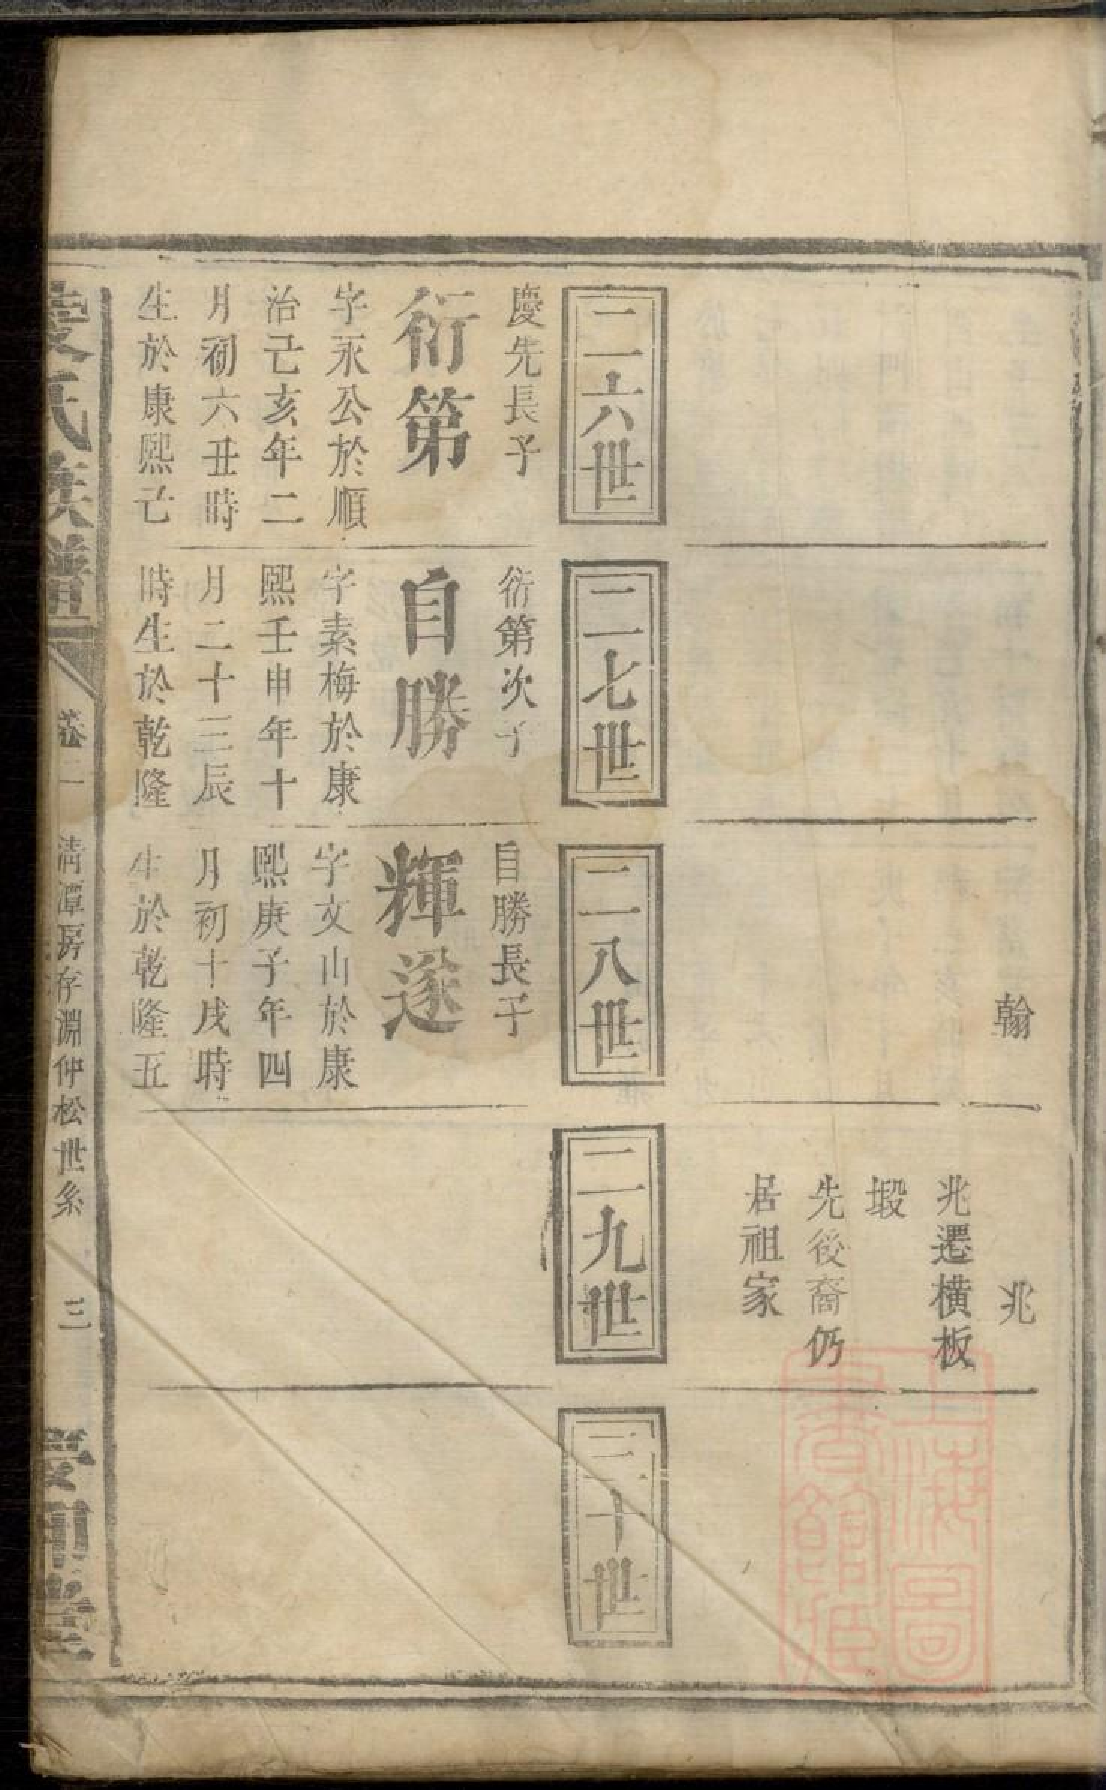 翰
兆
兆遷橫板
塅
先後裔仍
居祖家
二六世
二七世
二八世
二九世
三十世
慶先長子
衍第
字永公於順
治己亥年二
月初六丑時
生於康熙己
衍第次子
自勝
字素梅於康
熙壬申年十
月二十三辰
時生於乾隆
自勝長子
輝遂
字文山於康
熙庚子年四
月初十戌時
生於乾隆五
氏族譜
卷一
清潭房存淵仲松世系
三
上海圖
書館藏